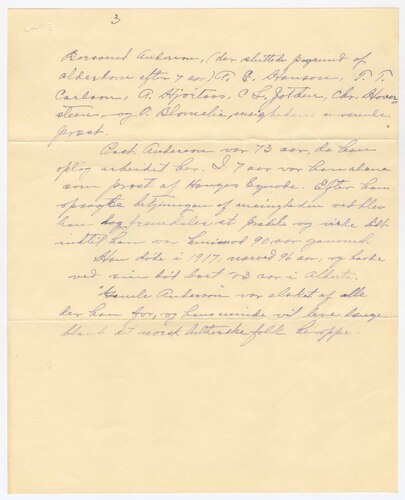 3
Bersvend Anderson, (der sluttede paagrund af
alderdom efter 7 aar) A. E. Hanson, T. T.
Carlson, A. Hjortaas, C. S. Chr. Hover-
steen, og O. menighedens nuværende
prest.
Past. Anderson var 73 aar, da han
optog arbeidet her. I 7 aar var han alene
som prest af Hauges Synode. Efter han
opsagde betjeningen af menigheden vedblev
han dog fremdeles at prædike og virke lidt
indtil han var henimod 90 aar gammel.
Han døde i 1917, nærved 96 aar, og havde
ved sin død boet 23 aar i Alberta.
"Gamle Anderson" var elsket af alle
der han for, og hans minde vil leve længe
blandt et norsk lutherske folk heroppe.